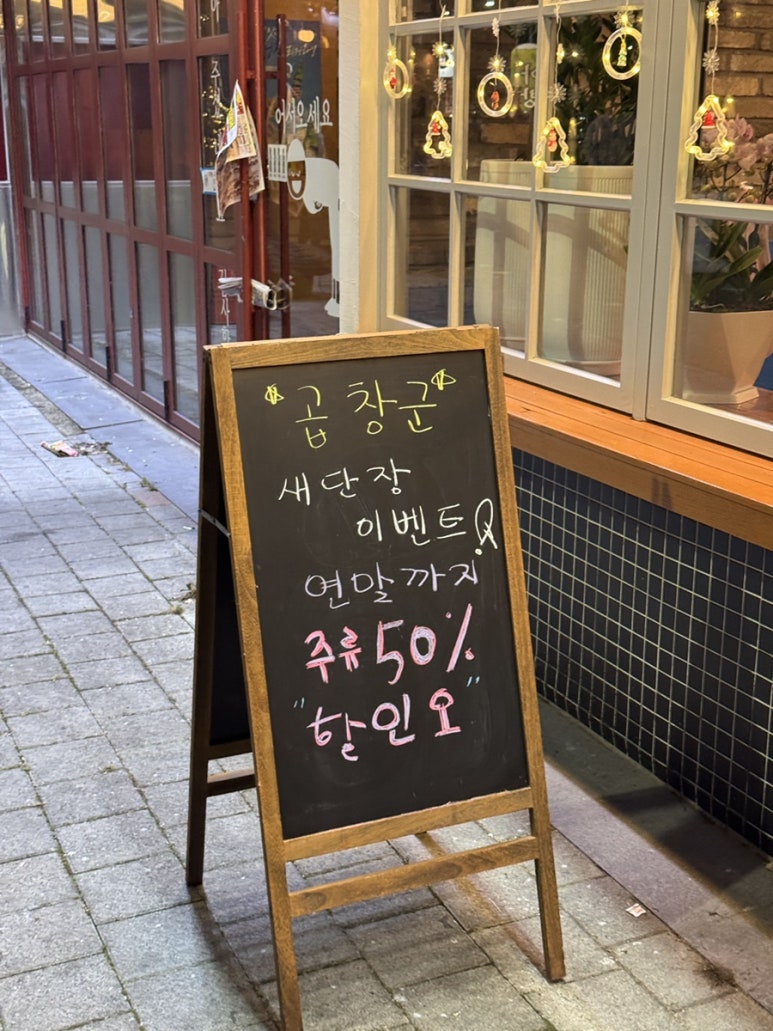 어서오세요
곱창군
새단장
이벤트
연말까지
주류 50%
"할인오"